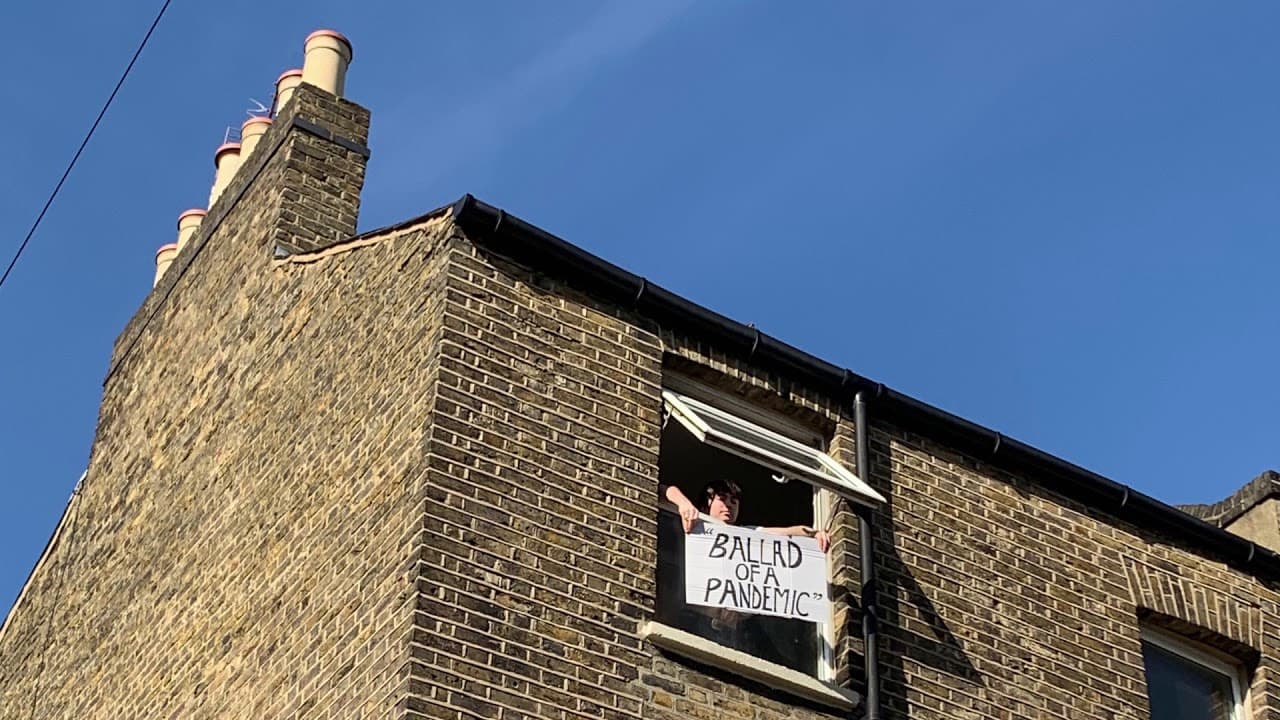 “BALLAD
OF A
PANDEMIC”